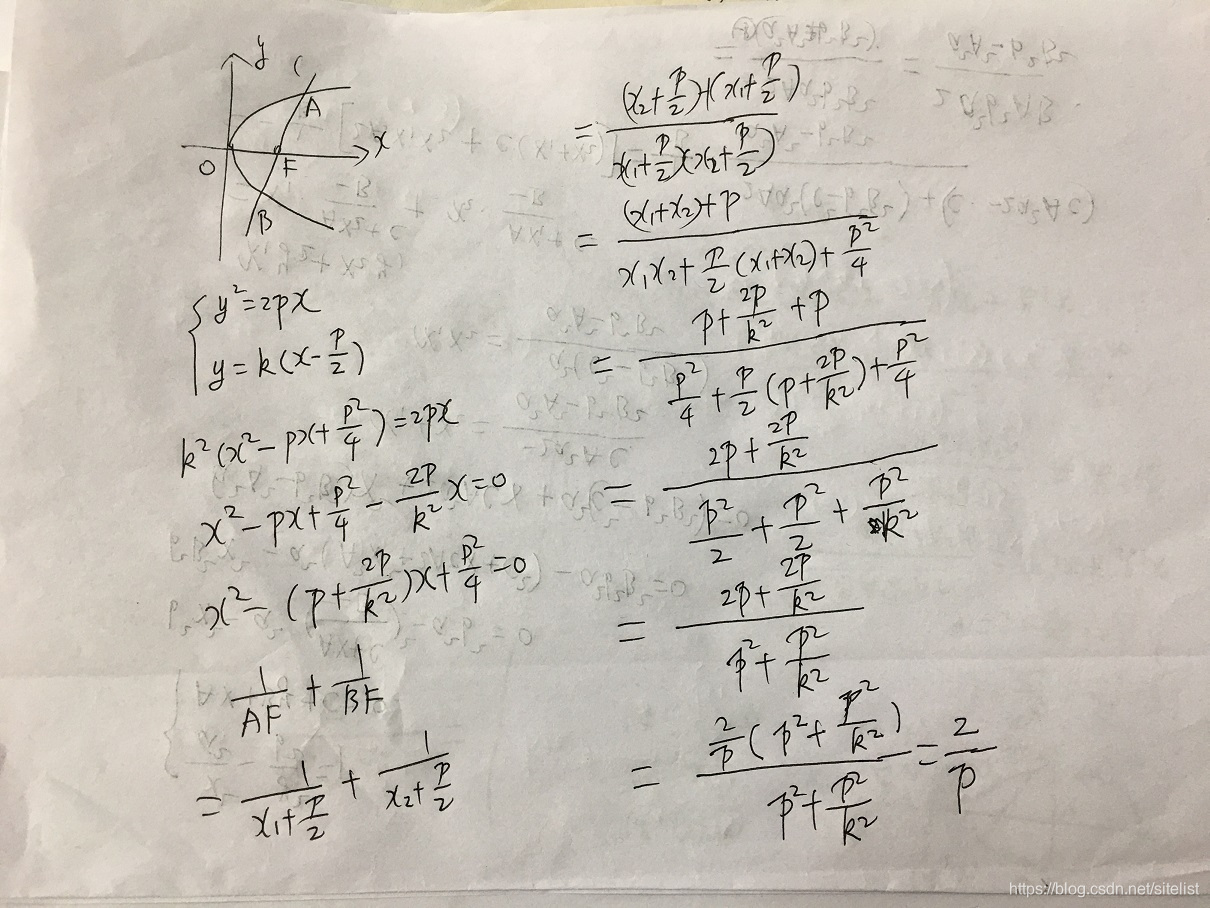 y
C
A
x
O
F
B
{ y² = 2px
y = k(x - p/2)
k²(x² - px + p²/4) = 2px
x² - px + p²/4 - 2p/k² x = 0
x² - (p + 2p/k²)x + p²/4 = 0
1/AF + 1/BF
= 1/(x₁ + p/2) + 1/(x₂ + p/2)
= ((x₂ + p/2) + (x₁ + p/2)) / (x₁ + p/2)(x₂ + p/2)
= ((x₁ + x₂) + p) / (x₁x₂ + p/2 (x₁ + x₂) + p²/4)
= (p + 2p/k² + p) / (p²/4 + p/2 (p + 2p/k²) + p²/4)
= (2p + 2p/k²) / (p²/2 + p²/2 + p²/k²)
= (2p + 2p/k²) / (p² + p²/k²)
= (2/p (p² + p²/k²)) / (p² + p²/k²) = 2/p
https://blog.csdn.net/sitelist